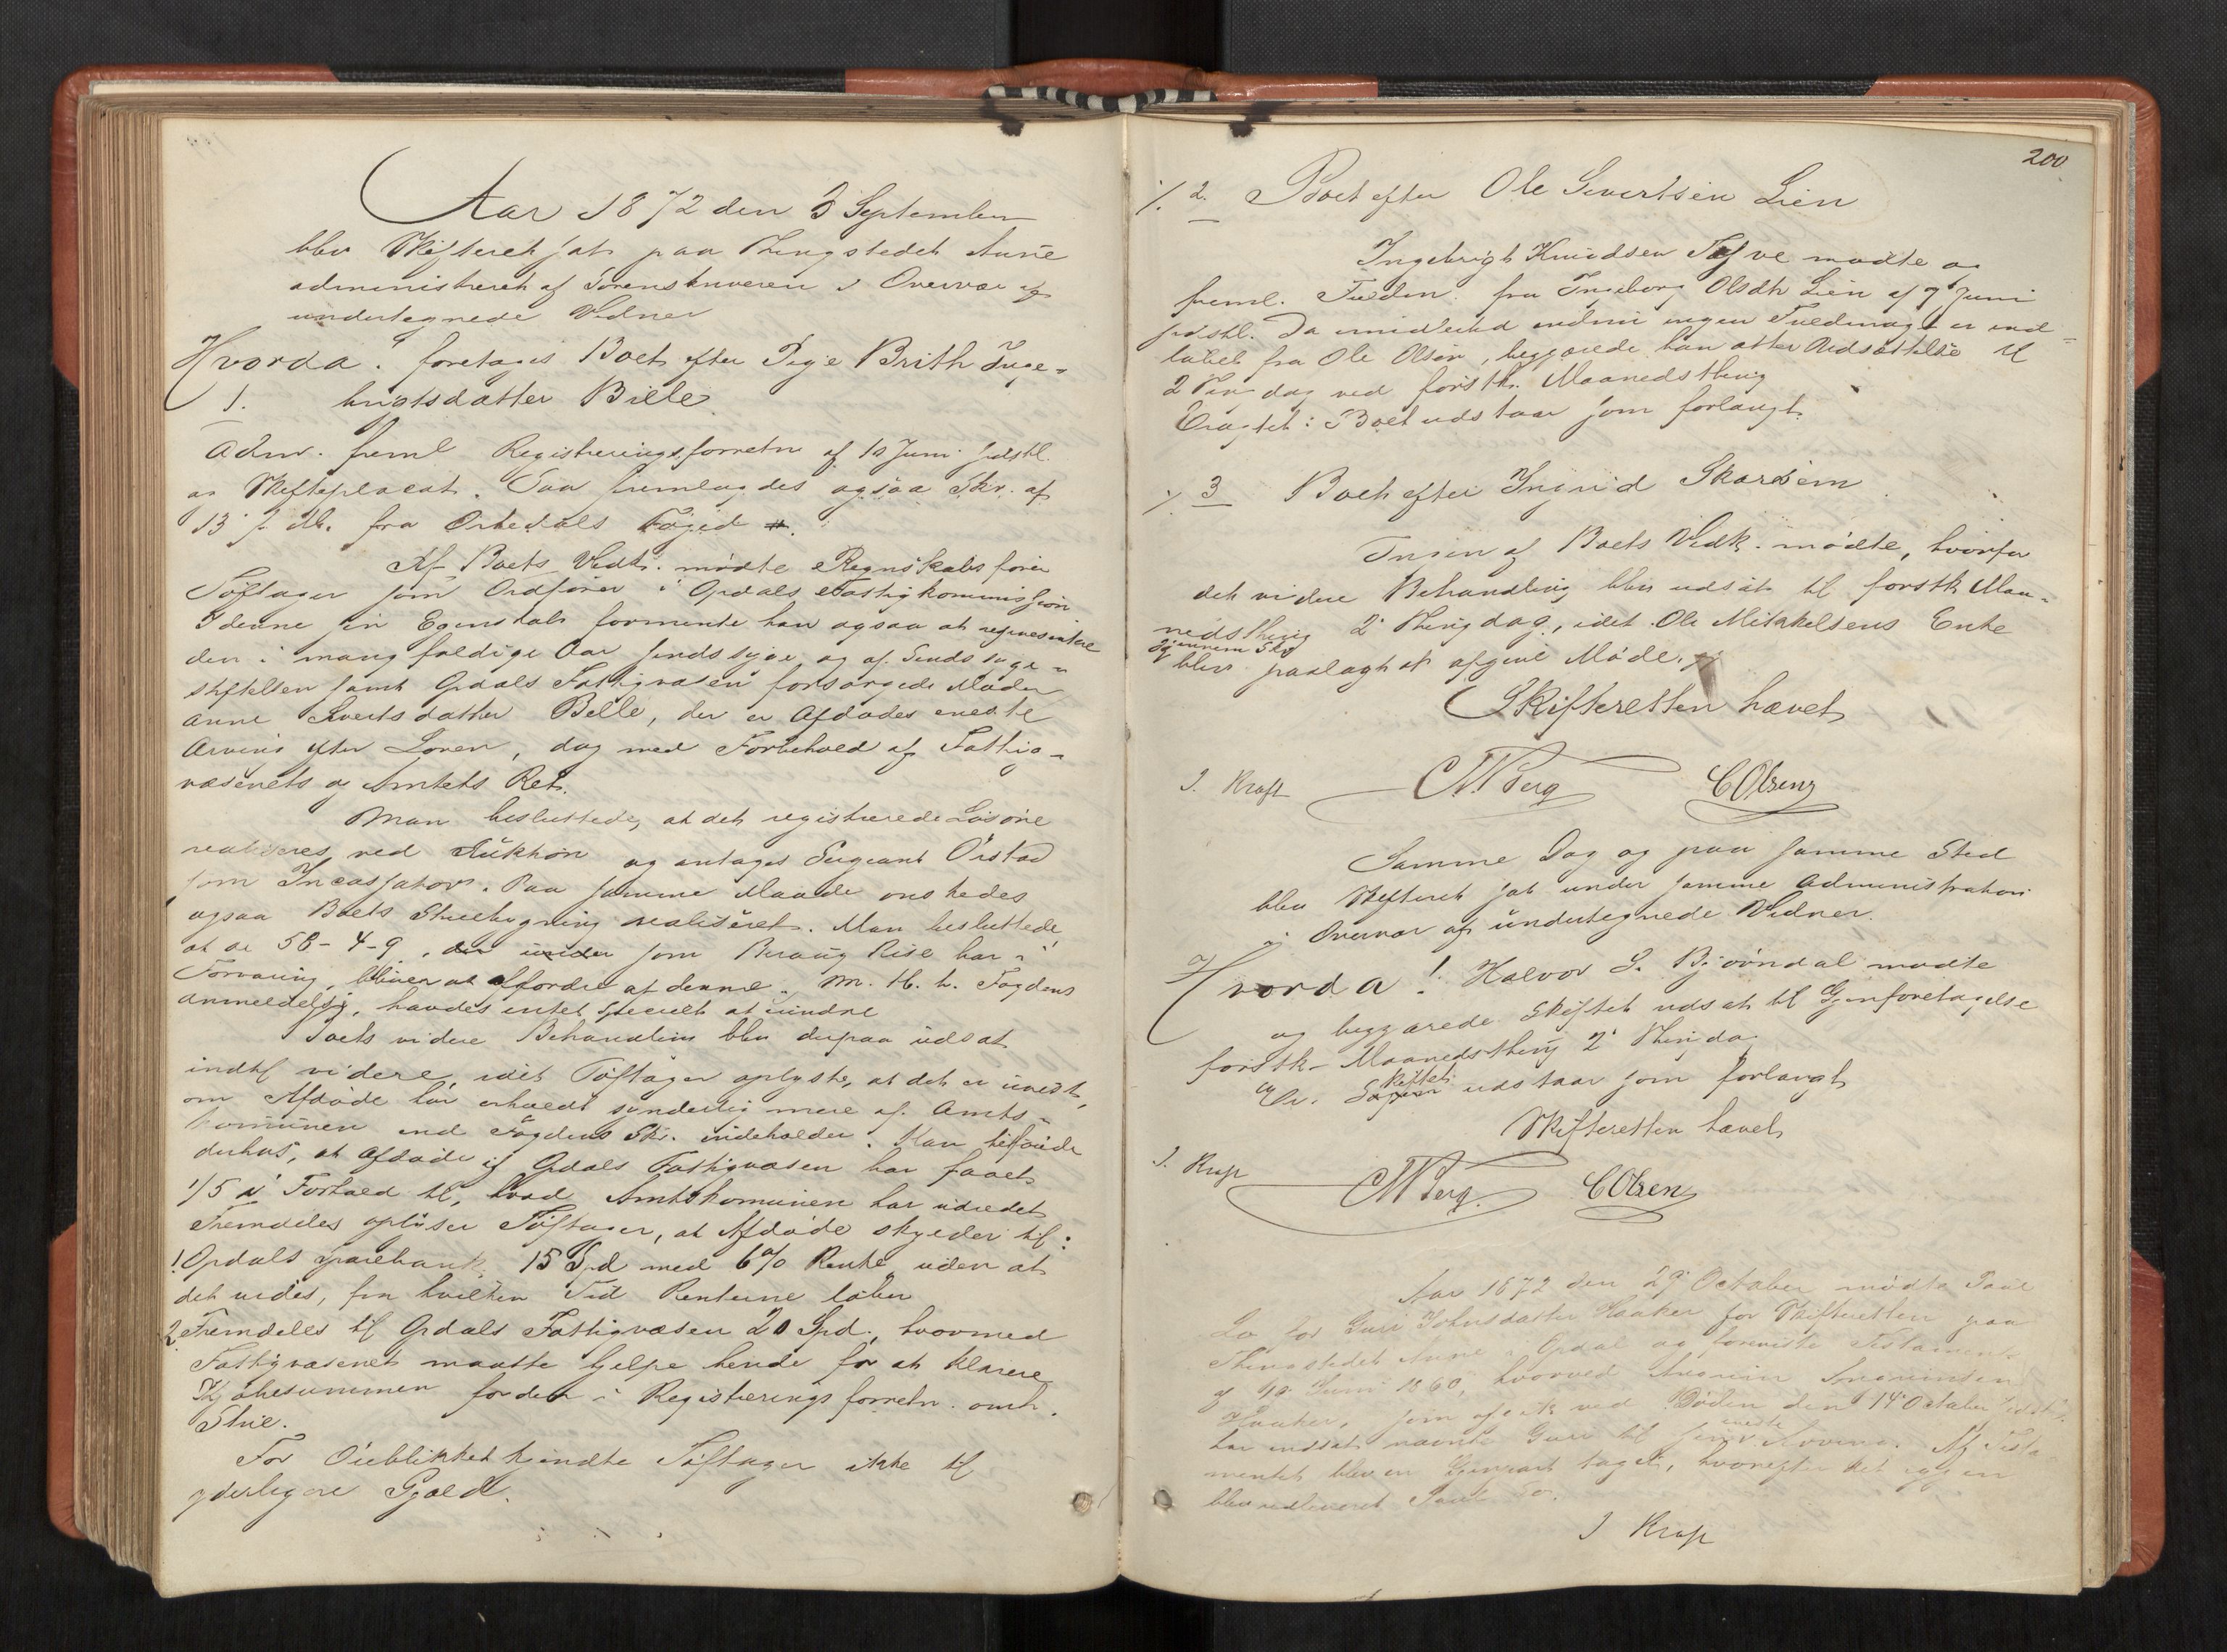 Aar 1872 den 3 September
blev Skifteret sat paa Thingstedet Aune
administreret af Sorenskriveren i Overvær af
undertegnede Vidner
Hvorda: foretages Boet efter Pige Brith Inge-
1. brigtsdatter Bille
Adm. freml Registreringsforretn af 10 Juni sidstl.
og Skifteplacat. Saa fremlagdes ogsaa Skr. af
13 f. M. fra Orkedals Foged
Af Boets Vedk. mødte Regnskabsfører
Tøftager som Ordfører i Opdals Fattigkommission
I denne sin Egenskab formente han ogsaa at repræsentere
den i mangfoldige Aar sindssyge og af Sindssyge-
stiftelsen samt Opdals Fattigvæsen forsørgede Moder
Anne Sivertsdatter Bille, der er Afdødes eneste
Arving efter Loven, dog med Forbehold af Fattig-
væsenets og Amtets Ret.
Man besluttede, at det registrerede Løsøre
realiseres ved Auktion og antages Sergeant Ørstad
som Incassator. Paa samme Maade ønskedes
ogsaa Boets Stuebygning realiseret. Man besluttede
at de 58-4-9, som Rise har i
Forvaring, bliver at affordre af denne. M. H. t. Fogdens
Anmeldelse, havdes intet specielt at erindre
Boets videre Behandling blev derpaa udsat
indtil videre, idet Tøftager oplyste, at det er uvist,
om Afdøde har erholdt synderlig mere af Amts-
komunen end Fogdens Skr. indeholder. Man tilføide
derhos, at Afdøde af Opdals Fattigvæsen har faaet
1/5 i Forhold til, hvad Amtskomunen har udredet
Fremdeles oplyser Tøftager, at Afdøde skylder til:
1. Opdals Sparebank 15 Spd med 6% Rente, uden at
det vides, fra hvilken Tid Renterne løber
2 Fremdeles til Opdals Fattigvæsen 20 Spd., hvormed
Fattigvæsenet maatte hjelpe hende for at klarere
Kjøbesummen for den i Registreringsforretn. omh.
Stue.
For Øieblikket kjendte Tøftager ikke til
yderligere Gjæld.
200
2. Boet efter Ole Sivertsen Lien
Ingebrigt Knudsen mødte og
freml. Fuldm. fra Ingeborg Olsdtr Lien af 7 Juni
sidstl. Da imidlertid endnu ingen Fuldmagt er ind-
løbet fra Ole Olsen, begjærede han atter Udsættelse til
2 Thingdag ved førstk. Maanedsthing
Eragtet: Boet udstaar som forlangt.
3 Boet efter Ingrid Skarsem
Ingen af Boets Vedk. mødte, hvorfor
det videre Behandling blev udsat til førstk Maa-
nedsthing 2 Thingdag, idet Ole Mikkelsens Enke
gjennem Skr
blev paalagt at afgive Møde.
Skifteretten hævet
J. Kraft CM Berg C Olsen
Samme Dag og paa samme Sted
blev Skifteret sat under samme Administration
i Overvær af undertegnede Vidner.
Hvorda! Halvor S. Bjørndal mødte
og begjærede Skiftet udsat til Gjenforetagelse
førstk. Maanedsthing 2 Thingdag
Er. Skiftet udstaar som forlangt
Skifteretten hævet
J. Kraft CM Berg. C Olsen
Aar 1872 den 29 October mødte Paul
Lo for Guri Johnsdatter Haaker for Skifteretten paa
Thingstedet Aune i Opdal og foreviste Testament
af 10 Juni 1860, hvorved
Haaker, som afgik ved Døden den 14 October sidstl.
har indsat nævnte Guri til sin eneste Arving. Af Testa-
mentet blev en Gjenpart taget, hvorefter det igjen
blev udleveret Paul Lo.
J Kraft